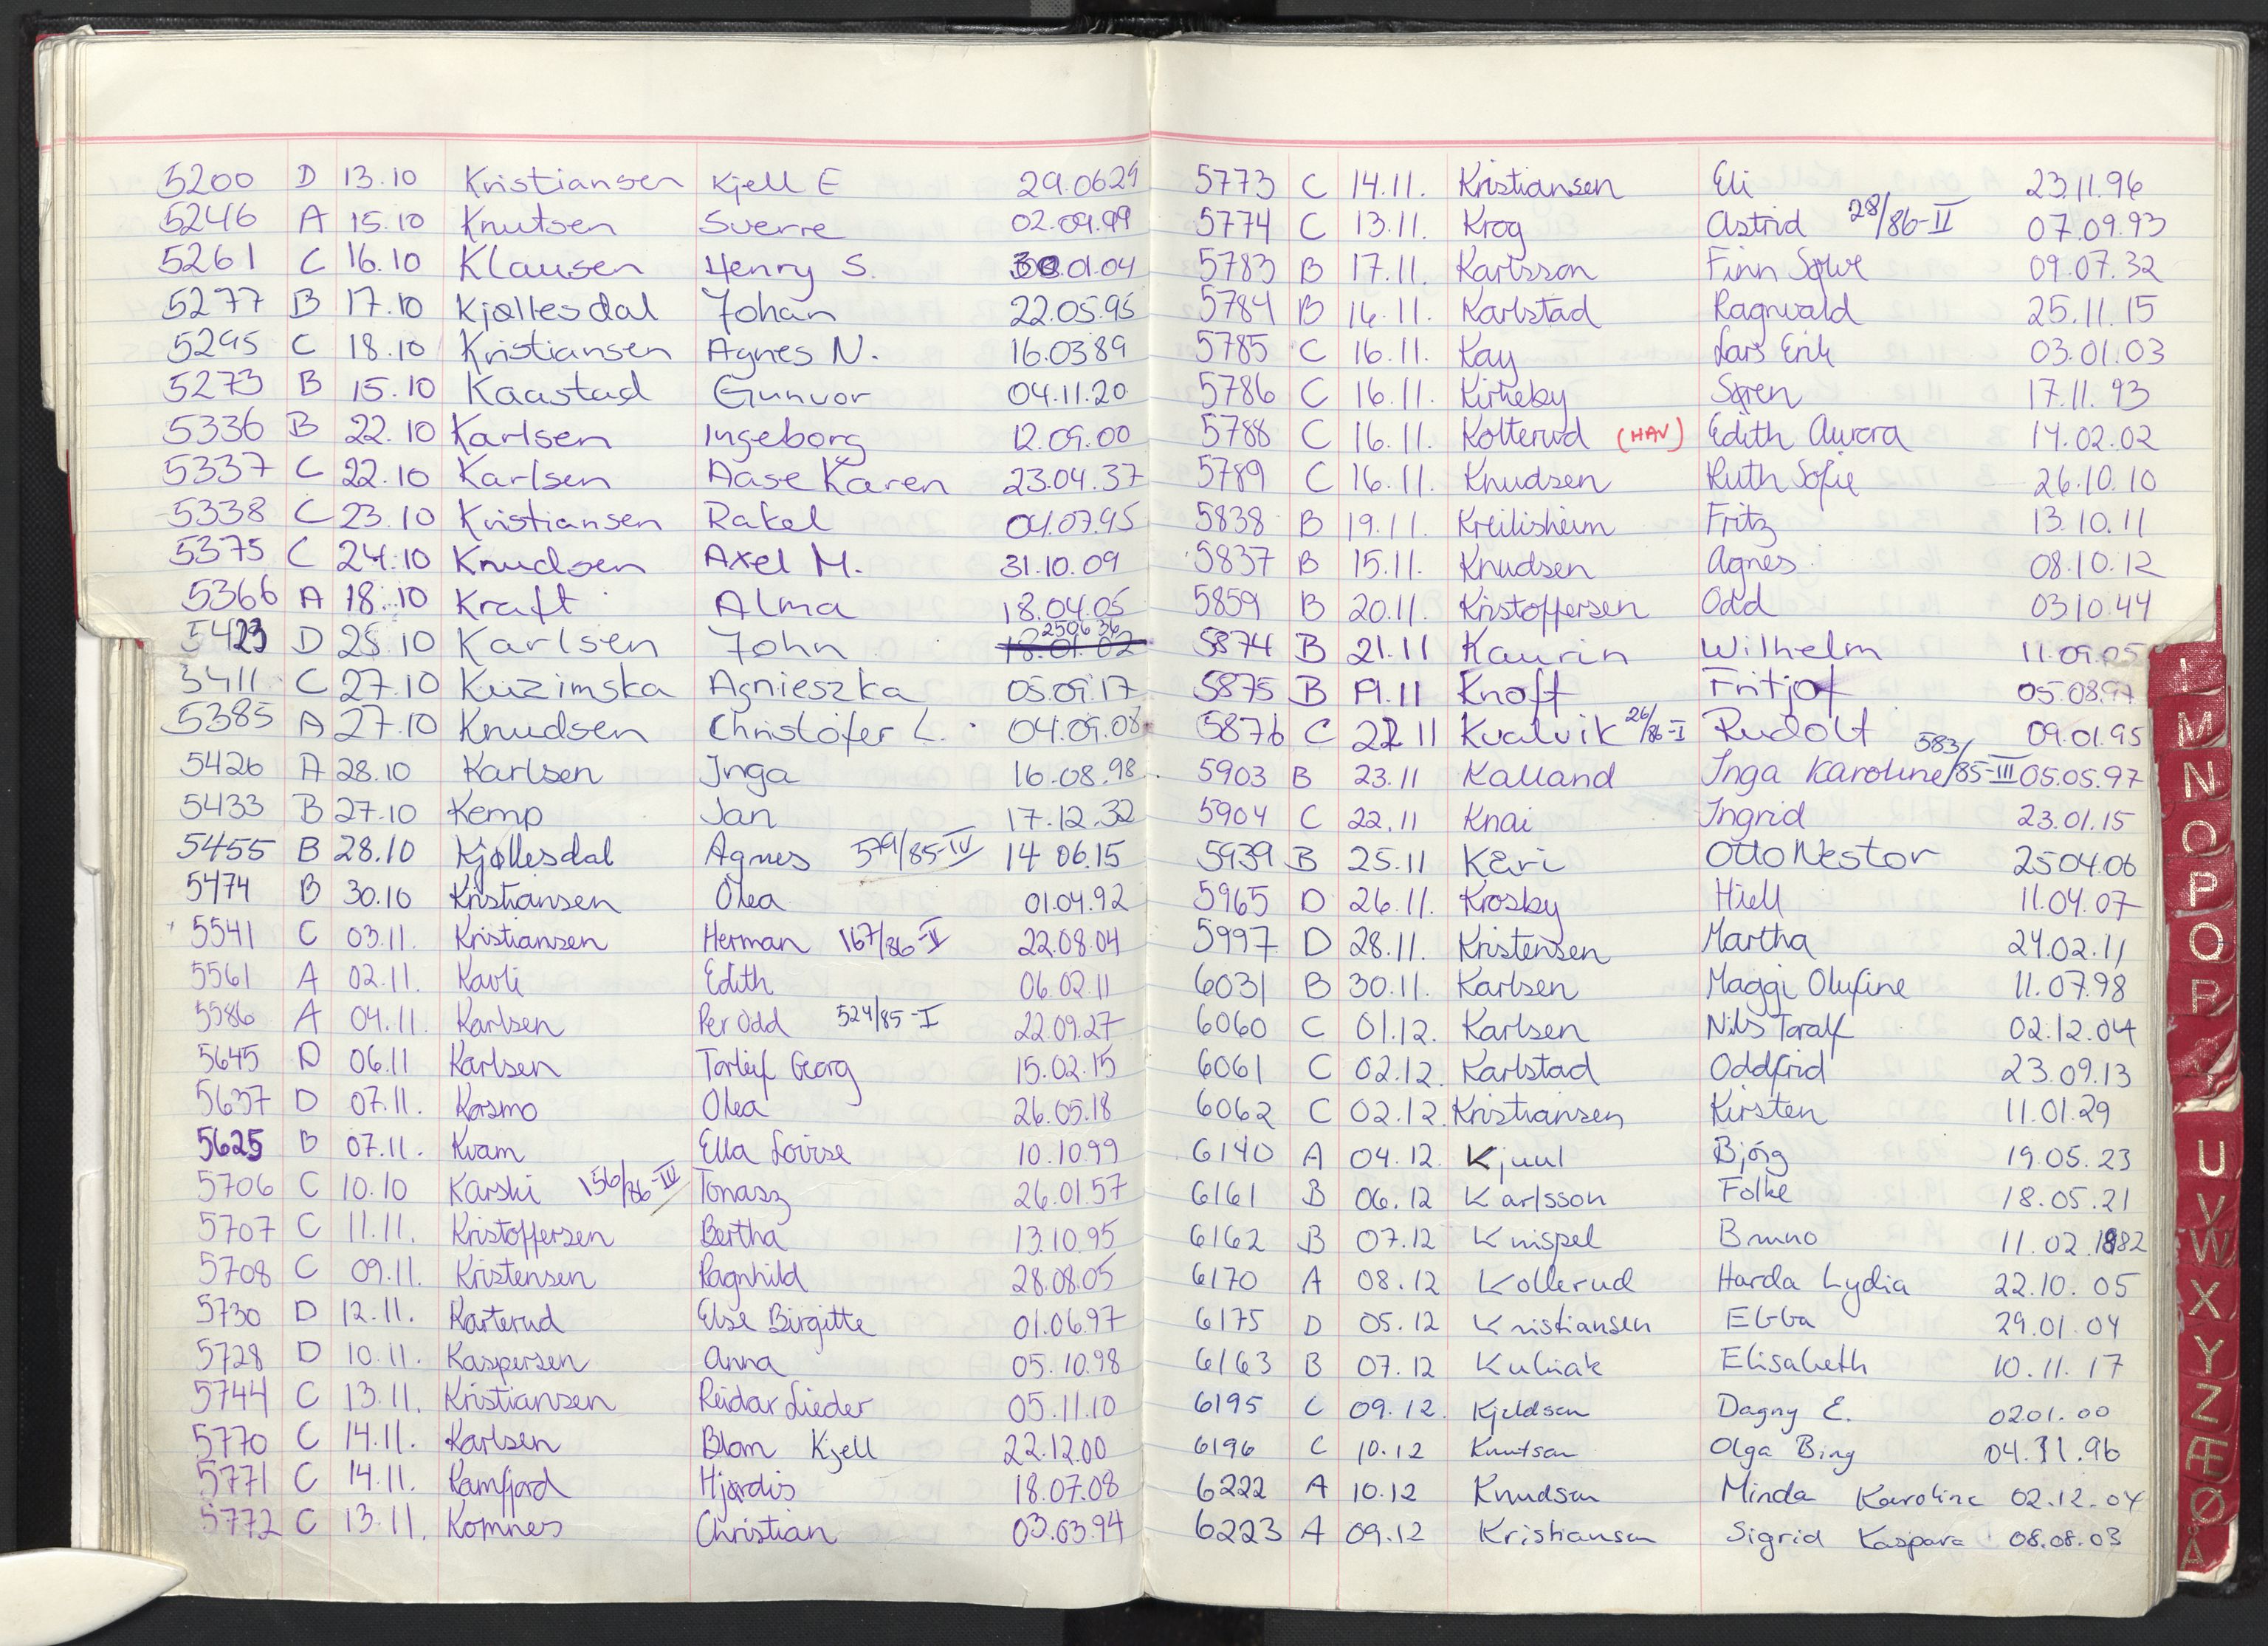 5200 D 13.10 Kristiansen Kjell E 29.0629
5246 A 15.10 Knutsen Sverre 02.09.99
5261 C 16.10 Klausen Henry S. 30.01.04
5277 B 17.10 Kjøllesdal Johan 22.05.95
5295 C 18.10 Kristiansen Agnes N. 16.0389
5273 B 15.10 Kaastad Gunvor 04.11.20
5336 B 22.10 Karlsen Ingeborg 12.09.00
5337 C 22.10 Karlsen Aase Karen 23.04.37
5338 C 23.10 Kristiansen Rakel 04.07.95
5375 C 24.10 Knudsen Axel M. 31.10.09
5366 A 18.10 Kraft Alma 18.04.05
5423 D 25.10 Karlsen John 250636 18.01.02
5411 C 27.10 Kuzimska Agnieszka 05.09.17
5385 A 27.10 Knudsen Christofer L. 04.09.08
5426 A 28.10 Karlsen Inga 16.08.98
5433 B 27.10 Kemp Jan 17.12.32
5455 B 28.10 Kjøllesdal Agnes 579/85-IV 14 06.15
5474 B 30.10 Kristiansen Olea 01.04.92
5541 C 03.11. Kristiansen Herman 167/86-II 22.08.04
5561 A 02.11. Kavli Edith 06.02.11
5586 A 04.11. Karlsen Per Odd 524/85-I 22.09.27
5645 D 06.11 Karlsen Torleif Georg 15.02.15
5637 D 07.11. Kosmo Olea 26.05.18
5625 B 07.11. Kvam Ella Lovise 10.10.99
5706 C 10.10 Karski 156/86-IV Tonasz 26.01.57
5707 C 11.11. Kristoffersen Bertha 13.10.95
5708 C 09.11. Kristensen Ragnhild 28.08.05
5730 D 12.11. Karterud Else Birgitte 01.06.97
5728 D 10.11. Kaspersen Anna 05.10.98
5744 C 13.11. Kristiansen Reidar Lieder 05.11.10
5770 C 14.11. Karlsen Blom Kjell 22.12.00
5771 C 14.11. Kamfjord Hjørdis 18.07.08
5772 C 13.11. Komnes Christian 03.03.94
5773 C 14.11. Kristiansen Eli 23.11.96
5774 C 13.11. Krog Astrid 28/86-II 07.09.93
5783 B 17.11. Karlsson Finn Sølve 09.07.32
5784 B 16.11. Karlstad Ragnvald 25.11.15
5785 C 16.11. Kay Lars Erik 03.01.03
5786 C 16.11. Kirkeby Søren 17.11.93
5788 C 16.11. Kolterud (HAV) Edith Aurora 14.02.02
5789 C 16.11. Knudsen Ruth Sofie 26.10.10
5838 B 19.11. Kreilisheim Fritz 13.10.11
5837 B 15.11. Knudsen Agnes 08.10.12
5859 B 20.11. Kristoffersen Odd 0310.44
5874 B 21.11 Kaurin Wilhelm 11.09.05
5875 B 19.11 Knoff Fritjof 05.08.97
5876 C 22 11 Kvalvik 26/86-I Rudolf 09.01.95
5903 B 23.11 Kalland Inga Karoline 583/85-III 05.05.97
5904 C 22.11 Knai Ingrid 23.01.15
5939 B 25.11 Keri Otto Nestor 2504.06
5965 D 26.11. Krosby Hjell 11.04.07
5997 D 28.11. Kristensen Martha 24.02.11
6031 B 30.11. Karlsen Maggi Olufine 11.07.98
6060 C 01.12. Karlsen Nils Toralf 02.12.04
6061 C 02.12. Karlstad Oddfrid 23.09.13
6062 C 02.12. Kristiansen Kirsten 11.01.29
6140 A 04.12. Kjuul Bjórg 19.05.23
6161 B 06.12 Karlsson Folke 18.05.21
6162 B 07.12 Knispel Bruno 11.02.1882
6170 A 08.12 Kollerud Harda Lydia 22.10.05
6175 D 05.12 Kristiansen Ebba 29.01.04
6163 B 07.12 Kubiak Elisabeth 10.11.17
6195 C 09.12. Kjeldsen Dagny E. 0201.00
6196 C 10.12 Knutsen Olga Bing 04.11.96
6222 A 10.12 Knudsen Minda Karoline 02.12.04
6223 A 09.12 Kristiansen Sigrid Kaspara 08.08.03
L
M
N
O
P
Q
R
U
V
W
X
Y
Z
Æ
Ø
Å